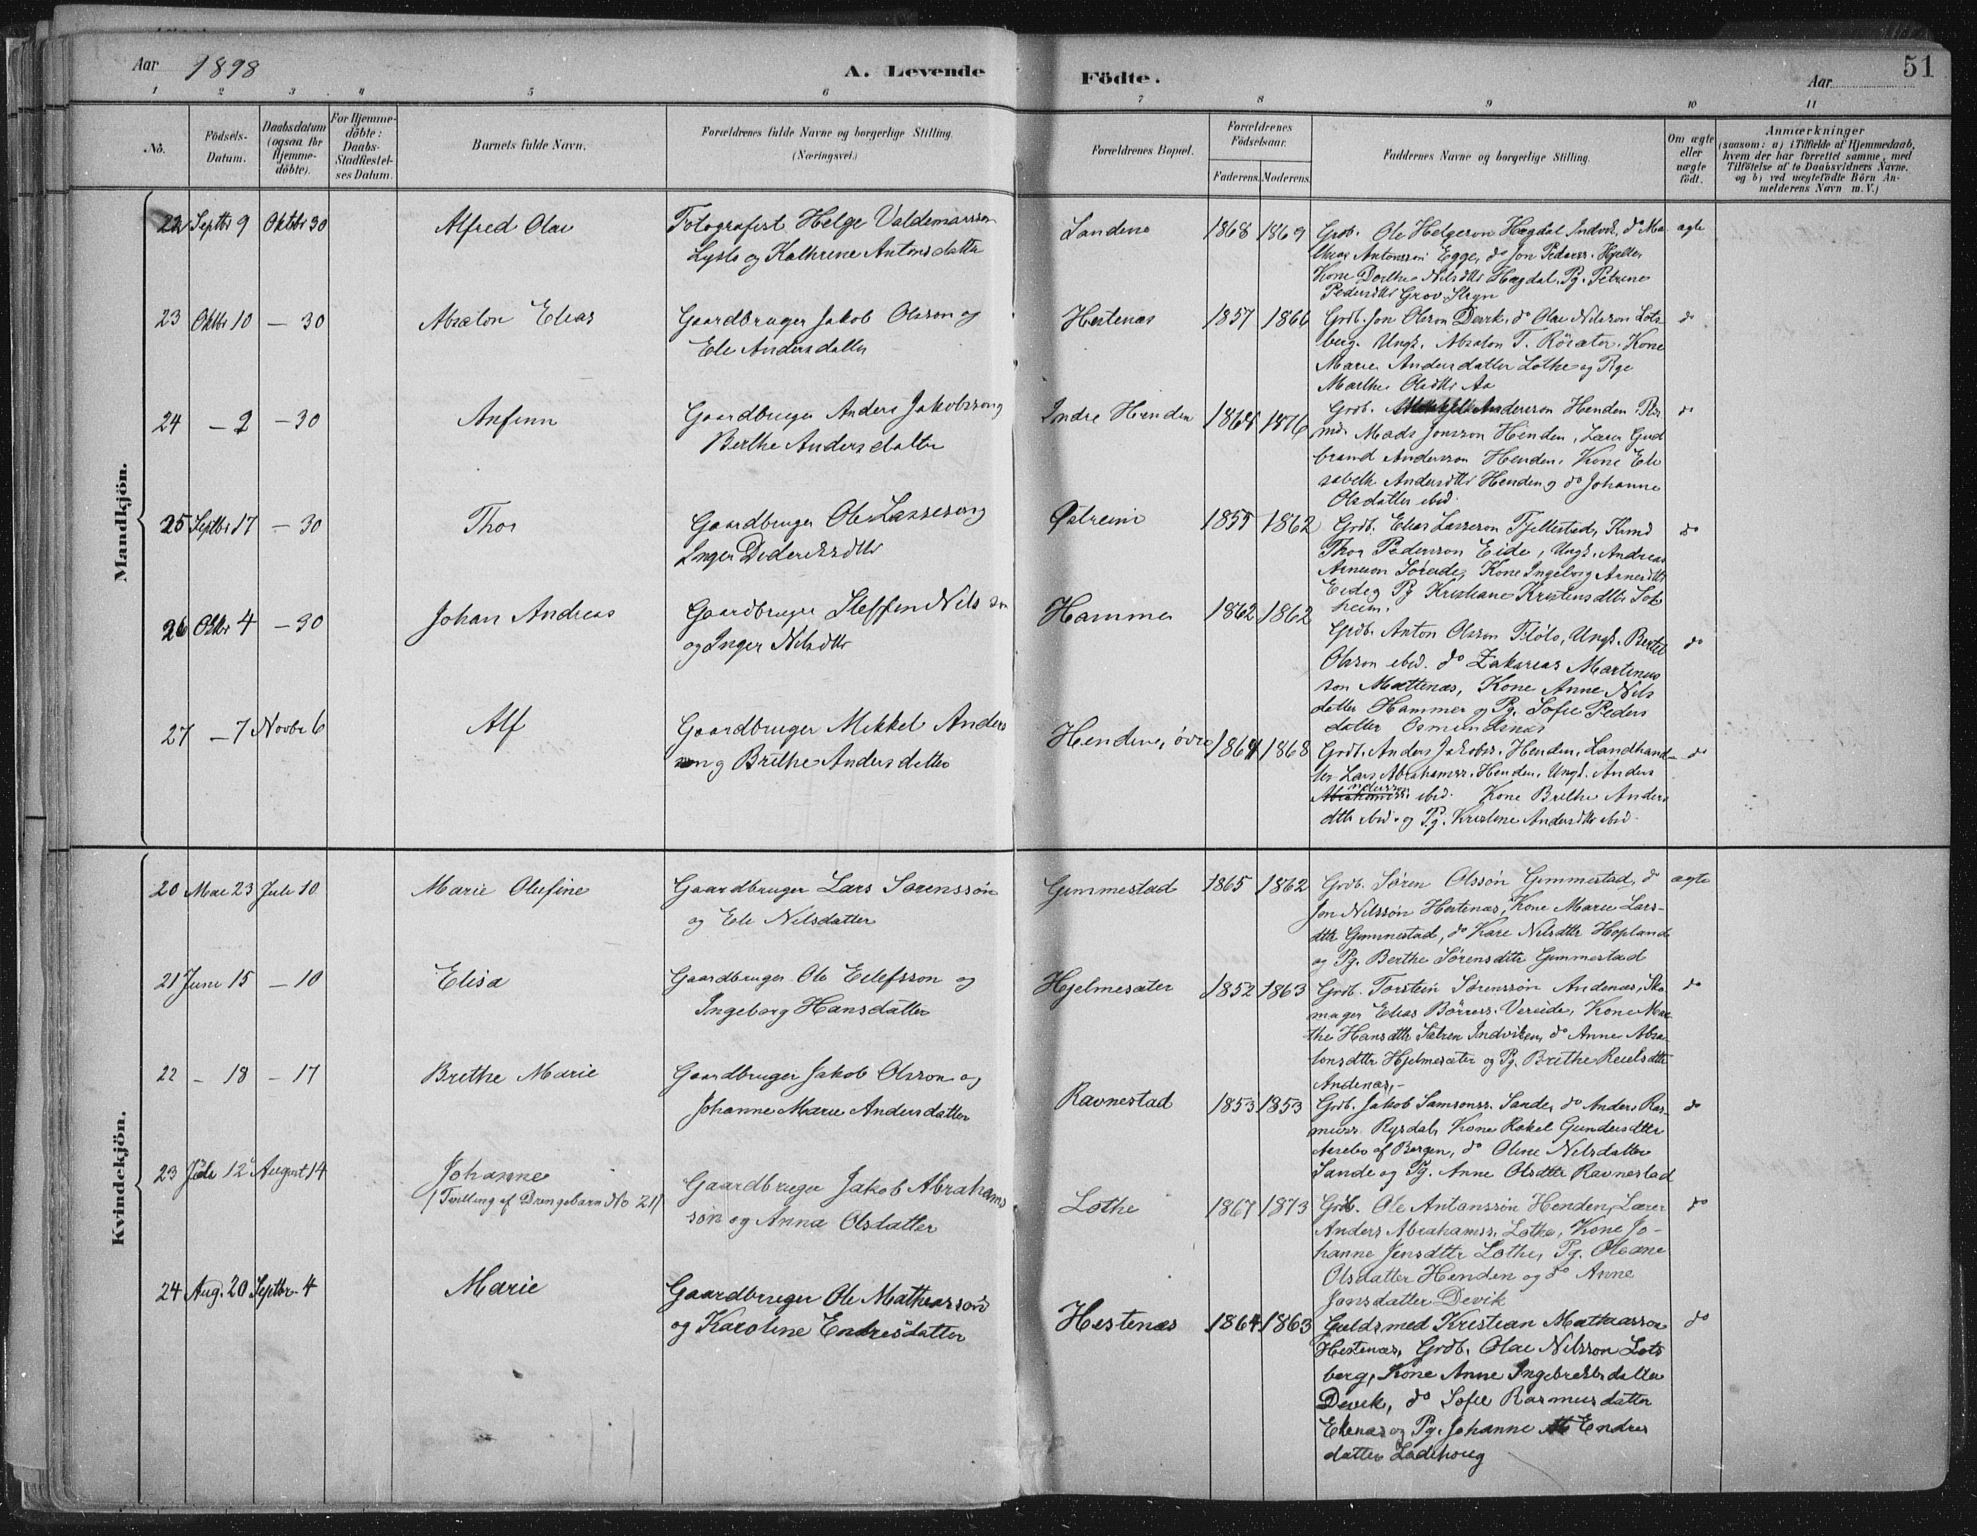 Aar 1898
A. Levende Födte.
Aar
51
1 2 3 4 5 6 7 8 9 10 11
No.
Födsels-Datum.
Daabsdatum (ogsaa for Hjemme-döbte).
For Hjemme-döbte: Daabs-Stadfæstel-ses Datum.
Barnets fulde Navn.
Forældrenes fulde Navne og borgerlige Stilling.
(Næringsvei.)
Forældrenes Bopæl.
Forældrenes Födselsaar.
Faderens. Moderens.
Faddernes Navne og borgerlige Stilling.
Om ægte eller uægte födt.
Anmærkninger
(saasom: a) i Tilfælde af Hjemmedaab,
hvem der har forrettet samme, med
Tilföielse af to Daabsvidners Navne.
og b) ved uægtefödte Börn An-
melderens Navn m. V.)
Mandkjön.
22 Septbr 9 Oktbr 30 Alfred Olai
Fotografist Helge Valdemarsson
Lyslo og Kathrine Antonsdatter
Sandene 1868 1869
Grdb. Ole Helgeson Hægdal Indvik, do Ma-
thias Antonsson Egge, do Jon Pederss. Hjelle
Kone Dorthe Nilsdtr Hægdal, Pg. Petrine
Pedersdtr Grov Stryn
ægte
23 Oktbr 10 – 30 Absalon Elias
Gaardbruger Jakob Olsson og
Eli Andersdatter
Hestenæs 1857 1866
Grdb. Jon Olsson Devik, do Olai Nilsson Lots-
berg. Ungk. Absalon T. Rösæter. Kone
Marie Andersdatter Lothe og Pge
Marthe Olsdtr Aa
do
24 – 2 – 30 Anfinn
Gaardbruger Anders Jakobsson og
Berthe Andersdatter
Indre Henden 1864 1876
Grdb. Andersson Henden
Mads Jonsson Henden, Lærer Gud
brand Andersson Henden. Kone Eli
sabeth Andersdtr Henden og do Johanne
Olsdatter ibid.
do
25 Septbr 17 – 30 Thor
Gaardbruger Ole Lasseson og
Inger Dideriksdtr
Østreim 1855 1862
Grdb. Elias Lasseson Fjellestad,
Thor Pedersson Eide, Ungk. Andreas
Arneson Søreide, Kone Ingeborg Arnesdtr
Eide og Pg Kristiane Kristensdtr Sol-
heim.
do
26 Oktbr 4 – 30 Johan Andreas
Gaardbruger Steffen Nilsson
og Inger Nilsdtr
Hammer 1862 1862
Grdb. Anton Olsson Fløtø, Ungk. Bertel
Olsson ibid. do Zakarias Martinus
son Mættenæs, Kone Anne Nils
datter Hammer og Pg. Sofie Peders
datter Osmundsnæs
do
27 – 7 Novbr 6 Alf
Gaardbruger Mikkel Anders
son og Brithe Andersdatter
Henden, øvre 1864 1868
Grdb. Anders Jakobss. Henden, Landhand-
ler Lars Abrahamss. Henden, Ungk. Anders
ndersson
Abrahamss ibid. Kone Brithe Anders
dtr ibid. og Pg. Kristine Andersdtr ibid.
do
Kvindekjön.
20 Mai 23 Juli 10 Marie Olufine
Gaardbruger Lars Sørenssön
og Eli Nilsdatter
Gimmestad 1865 1862
Grdb. Sören Olssön Gimmestad, do
Jon Nilssön Hestenæs, Kone Marie Lars-
dtr Gimmestad, do Kari Nilsdtr Hopland
og Pg. Berthe Sörensdtr Gimmestad
ægte
21 Juni 15 – 10 Elisa
Gaardbruger Ole Eilefsson og
Ingeborg Hansdatter
Hjelmesæter 1852 1863
Grdb. Torstein Sørenssön Andenæs, Sko-
mager Elias Börress. Vereide, Kone Mar-
the Hansdtr Sætren Indviken, do Anne Absa-
lonsdtr Hjelmesæter og Pg. Brithe Reielsdtr
Andenæs.-
do
22 – 18 – 17 Brithe Marie
Gaardbruger Jakob Olsson og
Johanne Marie Andersdatter
Ravnestad 1853 1853
Grdb. Jakob Samsonss. Sande, do Anders Ras-
muss. Rysdal, Kone Rakel Gundersdtr
Aarebø af Bergen, do Oline Nilsdatter
Sande og Pg. Anne Olsdtr Ravnestad
do
23 Juli 12 August 14 Johanne
(Tvilling af Drengebarn No 21)
Gaardbruger Jakob Abrahams
són og Anna Olsdatter
Lothe 1867 1873
Grdb. Ole Antonssön Henden, Lærer
Anders Abrahamss. Lothe, Kone Jo-
hanne Jensdtr Lothe, Pg. Oleane
Olsdatter Henden og do Anne
Jonsdatter Devik
do
24 Aug. 20 Septbr 4 Marie
Gaardbruger Ole Mathiassön
og Karoline Endresdatter
Hestenæs 1864 1863
Guldsmed Kristian Mathiasson
Hestenæs, Grdb. Olai Nilsson Lots
berg, Kone Anne Ingebrektsdatter
Devik, do Sofie Rasmusdatter
Ekenæs og Pg. Johanne Endres
datter Ladehoug
do